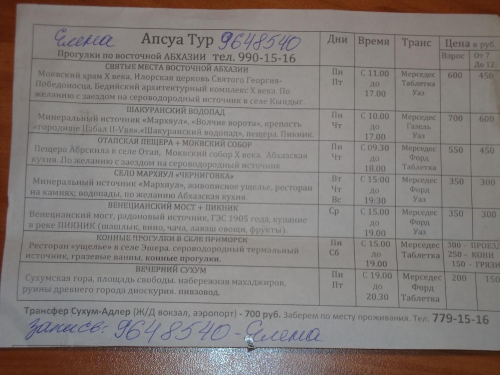 Елена Апсуа Тур 9648540
Прогулки по восточной АБХАЗИИ тел. 990-15-16
Дни Время Транс Цена в руб.
Взрос От 7 До 12
СВЯТЫЕ МЕСТА ВОСТОЧНОЙ АБХАЗИИ
Моквский храм X века, Илорская церковь Святого Георгия-
Победоносца, Бедийский архитектурный комплекс X века. По
желанию с заездом на сероводородный источник в селе Кындыг.
Пн Пт
С 11.00 до 17.00
Мерседес Таблетка Уаз
600 450
ШАКУРАНСКИЙ ВОДОПАД
Минеральный источник «Мархяул», «Волчие ворота», крепость
«городище Цабал II-Vвв», «Шакуранский водопад», пещера. Пикник.
Пн Чт
С 10.00 до 17.00
Мерседес Газель Уаз
700 600
ОТАПСКАЯ ПЕЩЕРА + МОКВСКИЙ СОБОР
Пещера Абрскила в селе Отап, Моквский собор X века. Абхазская
кухня. По желанию с заездом на сероводородный источник.
Пн Чт
С 09.30 до 18.00
Мерседес Форд Таблетка
550 450
СЕЛО МАРХЯУЛ «ЧЕРНИГОВКА»
Минеральный источник «Мархяул», живописное ущелье, ресторан
на камнях; водопады, по желанию Абхазская кухня.
Вт Чт Вс
С 15:00 до 19:30
Мерседес Таблетка Уаз
350 300
ВЕНЕЦИАНСКИЙ МОСТ + ПИКНИК
Венецианский мост, радоновый источник, ГЭС 1905 года, купание
в реке ПИКНИК (шашлык, вино, чача, лаваш овощи, фрукты).
Ср
С 15.00 до 19.00
Мерседес Форд Уаз
350 300
КОННЫЕ ПРОГУЛКИ В СЕЛЕ ПРИМОРСК
Ресторан «ущелье» в селе Эшера, сероводородный термальный
источник, грязевые ванны, конные прогулки.
Пн Сб
С 15.00 до 19.00
Мерседес Таблетка
300 - ПРОЕЗД
250 - КОНИ
150 - ГРЯЗИ
ВЕЧЕРНИЙ СУХУМ
Сухумская гора, площадь свободы, набережная махаджиров,
руины древнего города диоскурия, пивзавод.
Пн Пт
С 19.00 до 20.30
Мерседес Форд Таблетка
200 150
Трансфер Сухум-Адлер (Ж/Д вокзал, аэропорт) - 700 руб. Заберем по месту проживания. Тел: 779-15-16
запись: 9648540 - Елена